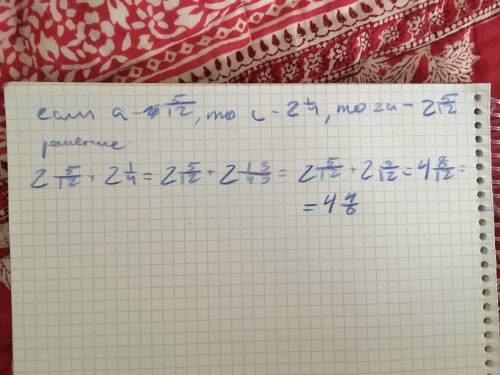 если a - 5/12, то c - 2 1/4, то 2a - 2 5/12
решение
2 5/12 + 2 1/4 = 2 5/12 + 2 1·3/4·3 = 2 5/12 + 2 3/12 = 4 8/12 =
= 4 4/6